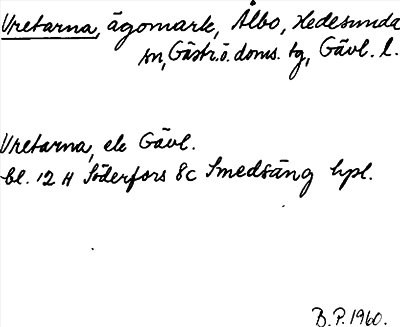 Vretarna, ägomark, Ålbo, Hedesunda
sn, Gästr.ö. doms. tg, Gävl. l.
Vretarna, ek Gävl.
bl. 12 H Söderfors 8c Smedsäng hpl.
B.P. 1960.